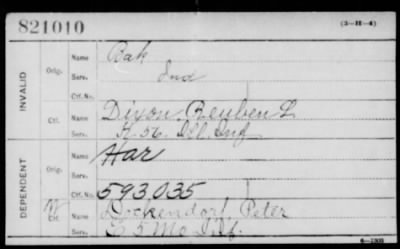 821010
(3-H-4)
INVALID
Orig.
Name
Serv. Ind
Ctf. No.
Ctf.
Name Dixon, Reuben L
Serv. K. 56. Ill. Inf
DEPENDENT
Orig.
Name Har
Serv.
Ctf. No. 593,035
Ctf.
Name Dockendorf, Peter
Serv. E 5 Mo Inf.